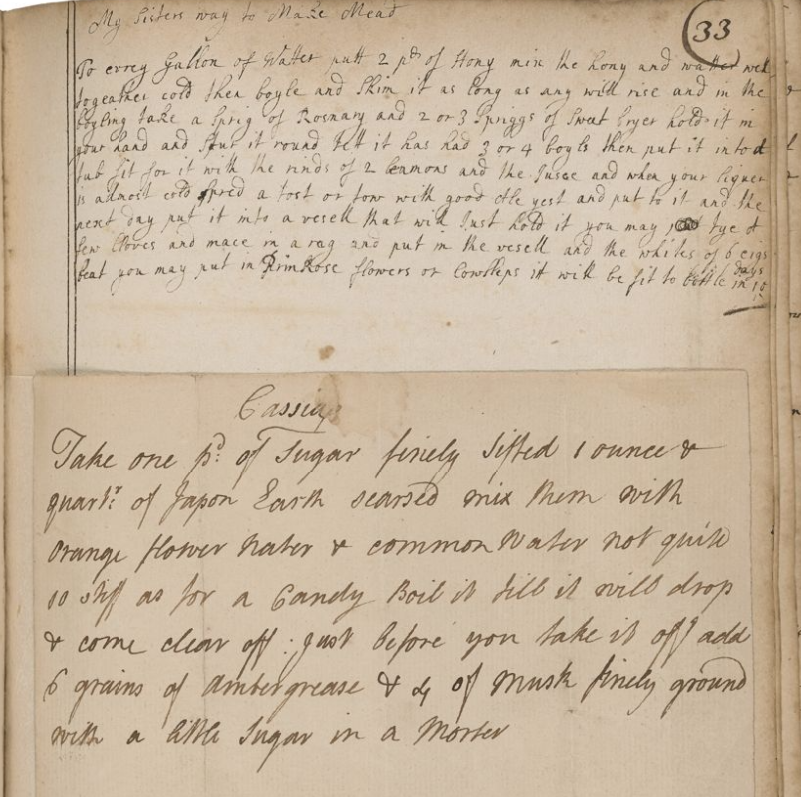 My Sisters way to Make Mead
33
To evrey Gallon of Watter putt 2 pds of Hony mix the hony and watter well
togeather cold then boyle and Skim it as long as any will rise and in the
boyling take a Sprig of Rosmary and 2 or 3 Spriggs of Sweet Bryer hold it in
your hand and Stur it round tell it has had 3 or 4 boyls then put it into a
tub for it with the rinds of 2 Leamons and the Jusee and when your liquer
is allmost cold spred a tost or tow with good Ale yest and put to it and the
next day put it into a vesell that will Just hold it you may tye a
few Cloves and mace in a rag and put in the vesell and the whites of 6 eigs
beat you may put in PrimRose flowers or Cowsleps it will be fit to bottle in 10
days
Cassia
Take one pd: of Sugar finely Sifted 1 ounce &
quartr: of Japon Earth searsed mix them with
Orange flower Water & common Water not quite
so stiff as for a Candy Boil it till it will drop
& come clear off: just before you take it off add
6 grains of Ambergrease & 4 of Musk finely ground
with a little Sugar in a Morter